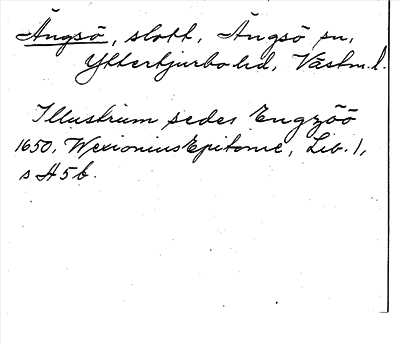 Ängsö, slott, Ängsö sn,
Yttertjurbo hd, Västm.l.
Illustrium sedes Engzöö
1650. Wexionius Epitome, Lib. 1,
s H5b.